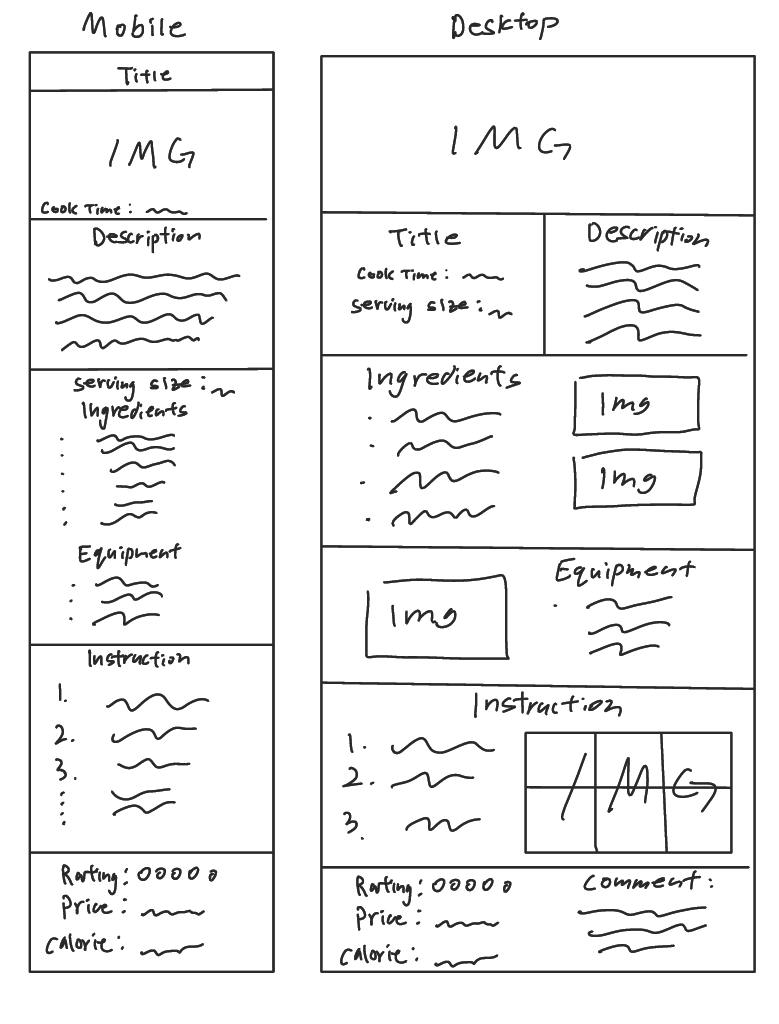 Mobile
Title
IMG
Cook Time:
Description
Serving size:
Ingredients
Equipment
Instruction
1.
2.
3.
Rarting:
Price:
Calorie:
Desktop
IMG
Title
Cook Time:
Serving size:
Description
Ingredients
Img
Img
Img
Equipment
Instruction
1.
2.
3.
IMG
Rarting:
Price:
Calorie:
Comment: